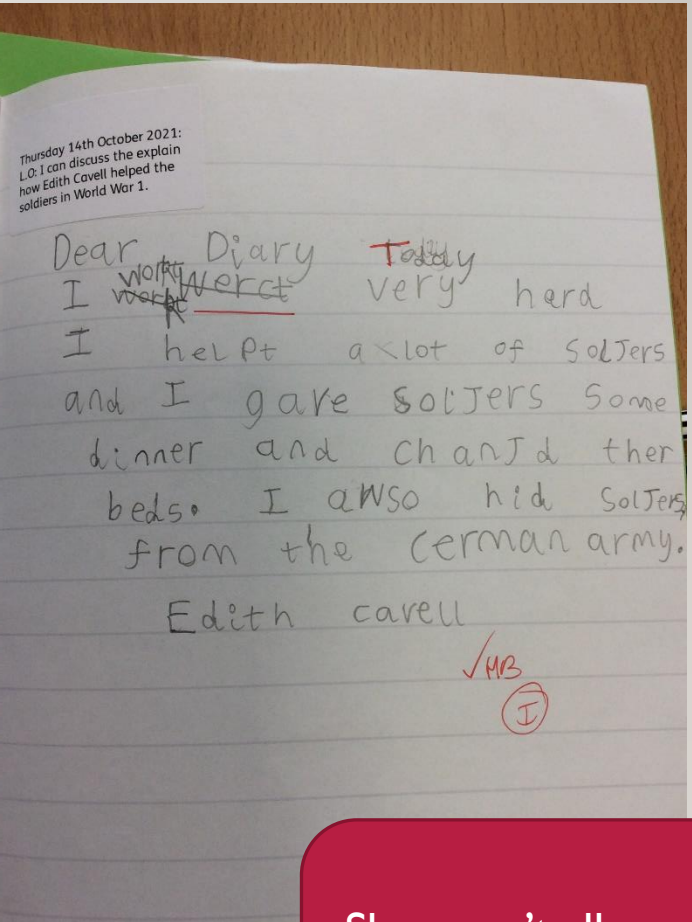 Thursday 14th October 2021:
L.O: I can discuss the explain
how Edith Cavell helped the
soldiers in World War 1.
Dear Diary Today
I werct very hard
I helPt a lot of SolJers
and I gave solJers Some
dinner and chanJd ther
beds. I awso hid SolJers
from the cerman army.
Edith cavell
✓MB
I